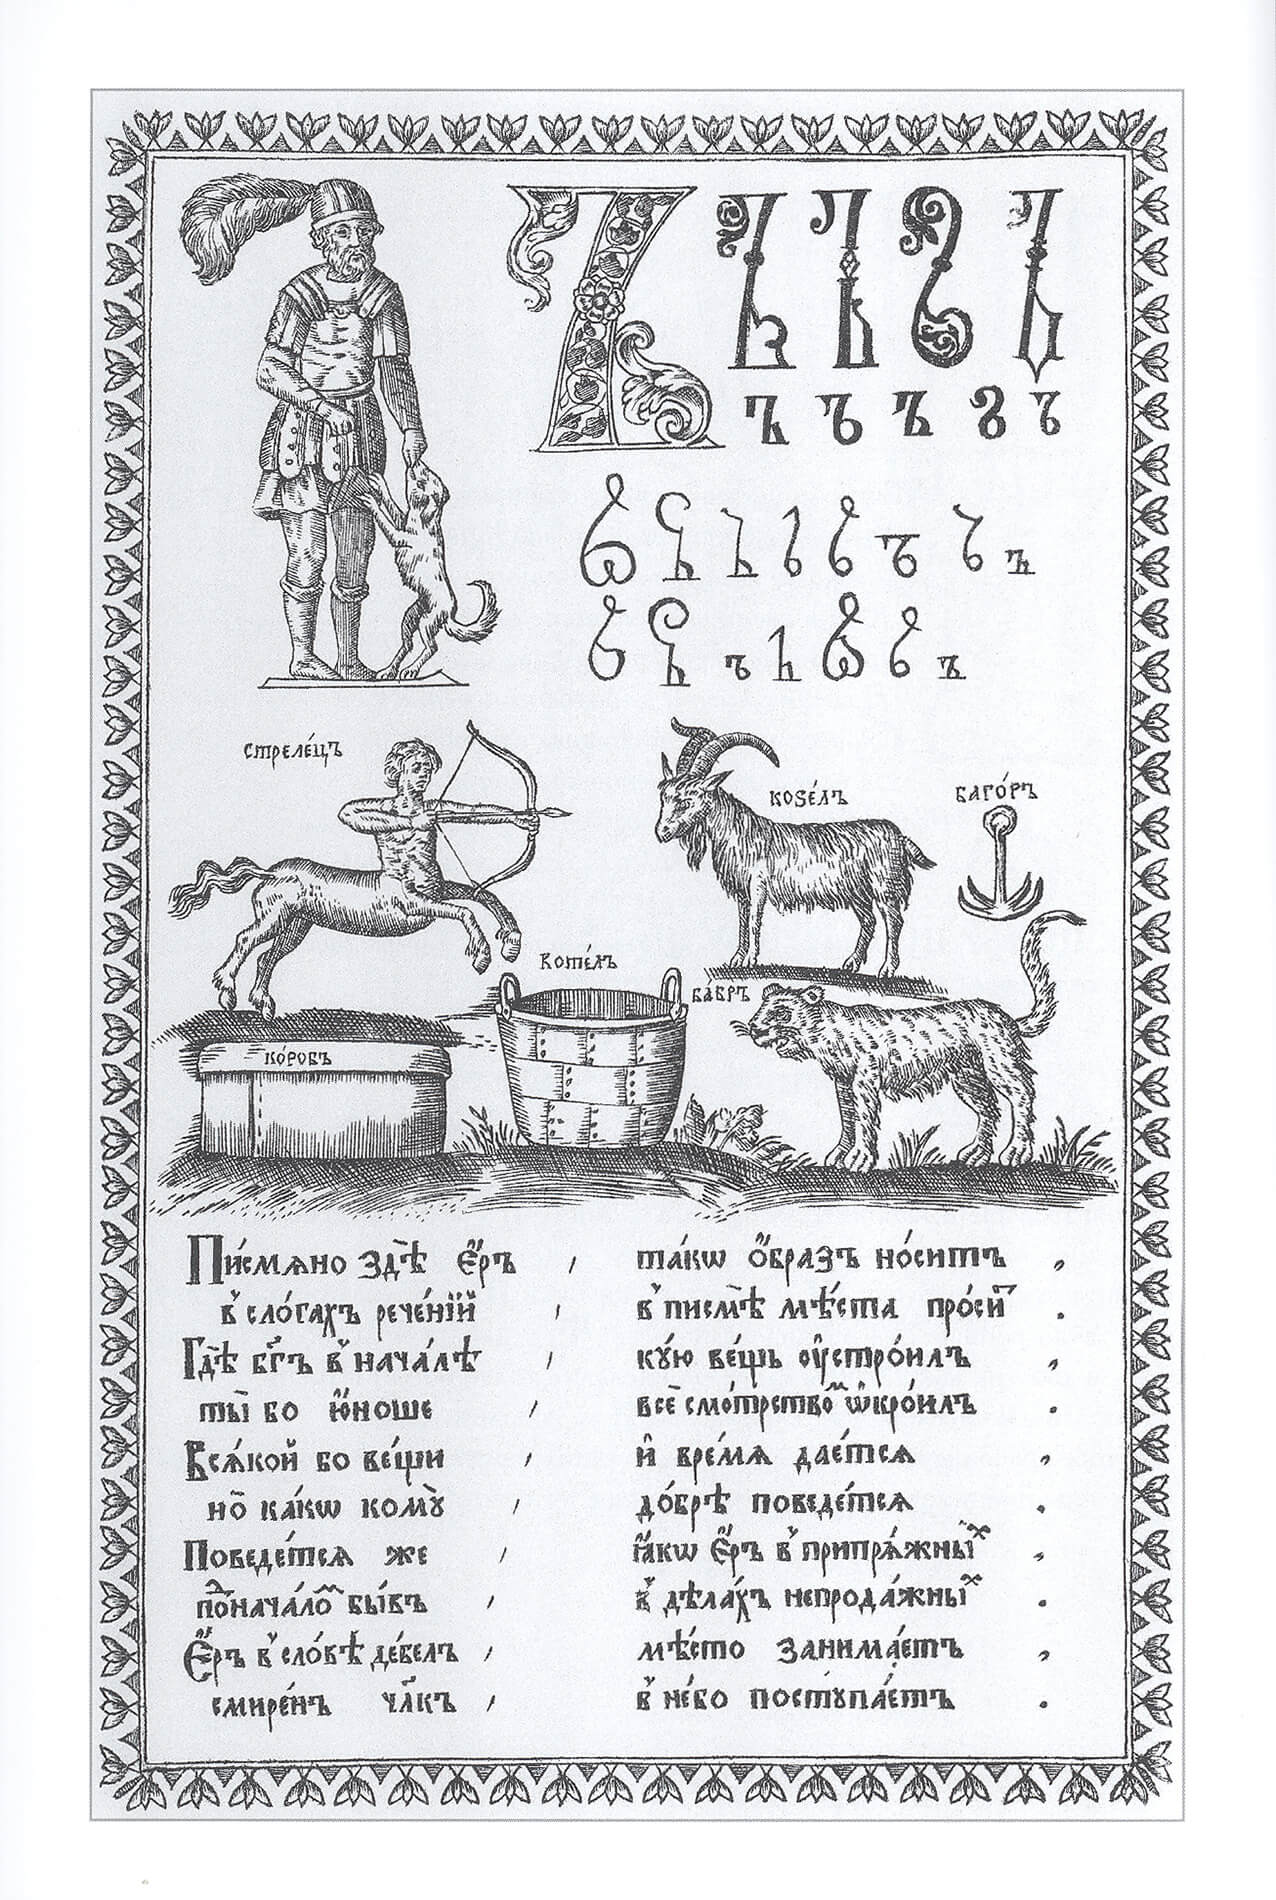 Ъ Ъ Ъ Ъ Ъ
ъ ъ ъ ъ ъ
ъ ъ ъ ъ ъ ъ ъ ъ
ъ ъ ъ ъ ъ ъ ъ
стреле́цъ
козе́лъ
баго́ръ
коте́лъ
ба́бръ
ко́робъ
Пи́смѧно здѣ̀ є҆́ръ , та́кѡ ѻ҆́бразъ но́ситъ ,
в̾ сло́гахъ рече́нїй , в̾ писмѣ̀ мѣ́ста про́сиⷮ .
Гдѣ̀ бг҃ъ в̾ нача́лѣ , ку́ю ве́щь ᲂу҆стро́илъ ,
ты̀ бо ю҆́ноше , всѐ смо́трствоⷨ ѡ҆кро́илъ .
Всѧ́кой бо ве́щи , и҆ вре́мѧ дае́тсѧ ,
но̀ ка́кѡ кому̀ , до́брѣ поведе́тсѧ .
Поведе́тсѧ же , ꙗ҆́кѡ є҆́ръ в̾ припрѧ́жныⷯ ,
поⷣнача́лоⷨ бы́въ , в̾ дѣ́лахъ непрода́жныⷯ .
Є҆́ръ в̾ сло́вѣ дебе́лъ , мѣ́сто занима́етъ ,
смире́нъ чл҃къ , в̾ не́бо поступа́етъ .